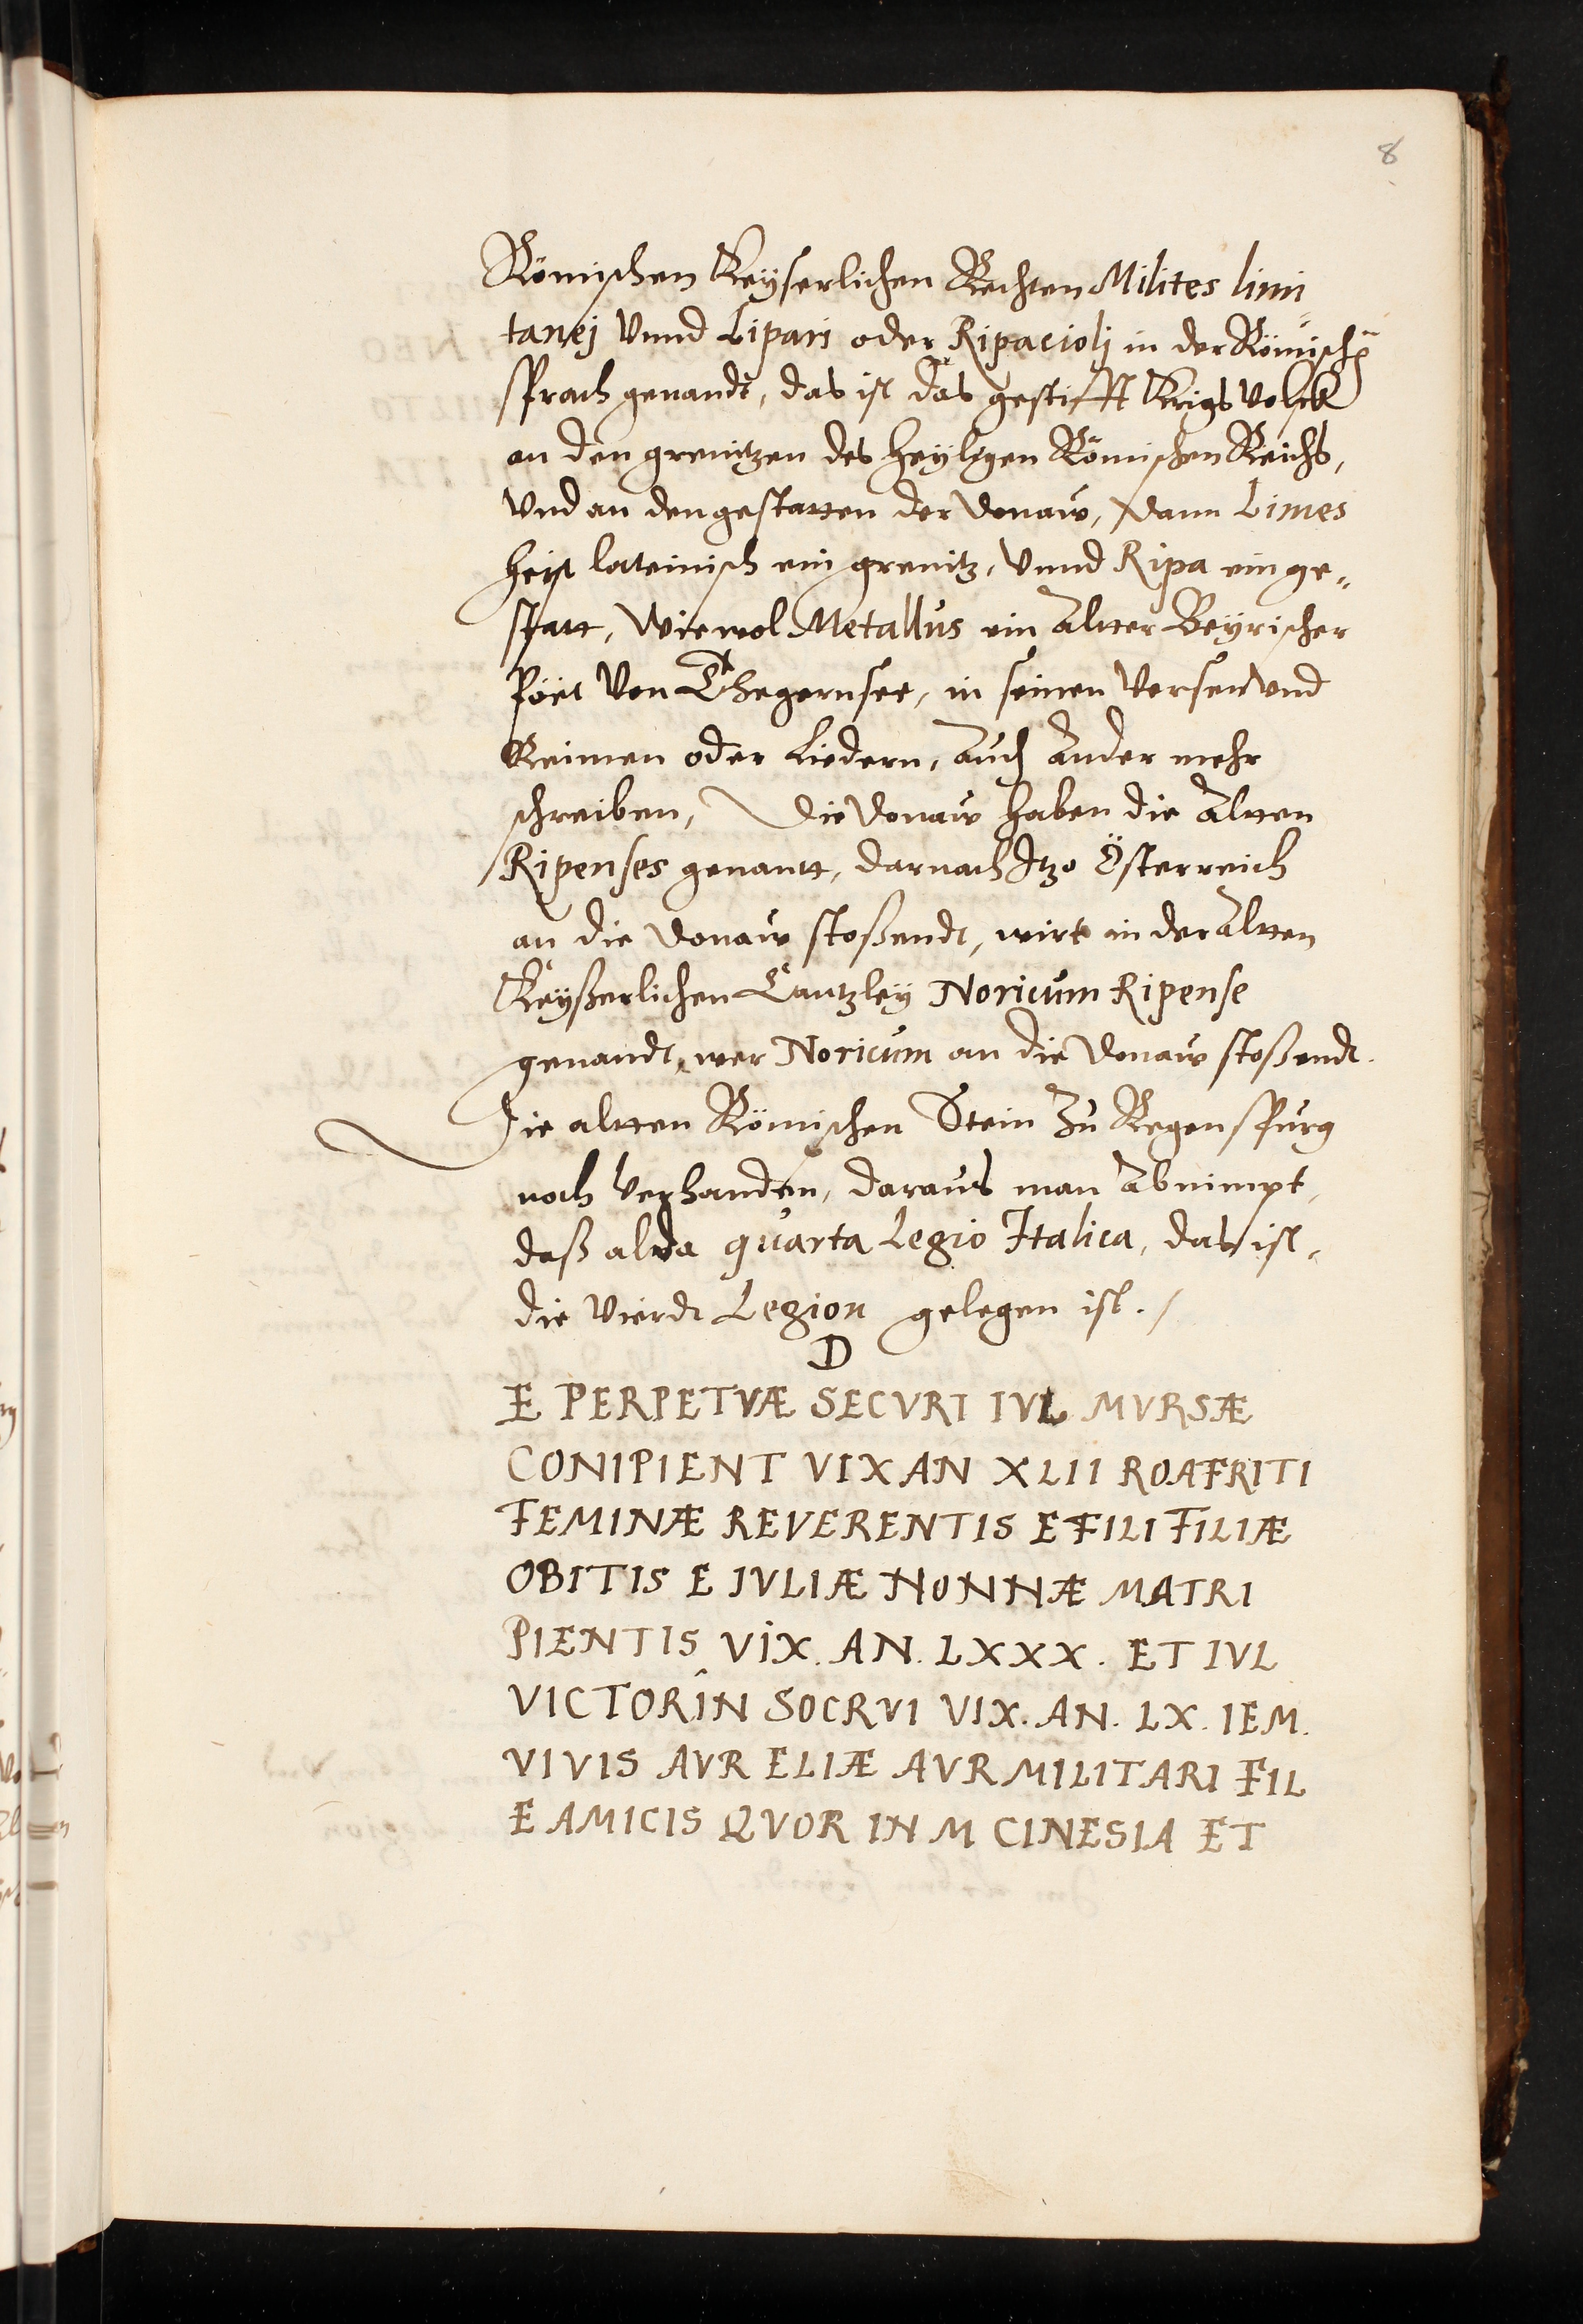 8
Römischen Keyserlichen Rechten Milites limi
tanej vnnd Lipari oder Ripaciolj in der Römischē
sprach genandt, das ist das gestifft Krigs volck
an den grenitzen des heyligen Römischen Reichs,
vnd an den gestatten der Donaw, Dann Limes
heist lateinisch ein grenitz, vnnd Ripa ein ge„
statt, Wiewol Metallus ein Altter Beyrischer
Poet von Thegernsee, in seinen Versen vnd
Reimen oder Liedern, Auch Ander mehr
schreiben, Die Donaw haben die Altten
Ripenses genantt, darnach Itzo Österreich
an die Donaw stoßendt, wirt in der Altten
Keyßerlichen Cantzley Noricum Ripense
genandt, wer Noricum an die Donaw stoßendt.
Die altten Römischen Stein zu Regenspurg
noch verhanden, daraus man Abnimpt,
daß alda quarta Legio Italica, das ist,
die vierdt Legion gelegen ist. /
D
E PERPETVÆ SECVRI IVL MVRSÆ
CONIPIENT VIX AN XLII ROAFRITI
FEMINÆ REVERENTIS E FILI FILIÆ
OBITIS E IVLIÆ NONNÆ MATRI
PIENTIS VIX. AN. LXXX. ET IVL
VICTORÎN SOCRVI VIX. AN. LX. IEM.
VIVIS AVR ELIÆ AVR MILITARI FIL
E AMICIS QVOR IN M CINESIA ET